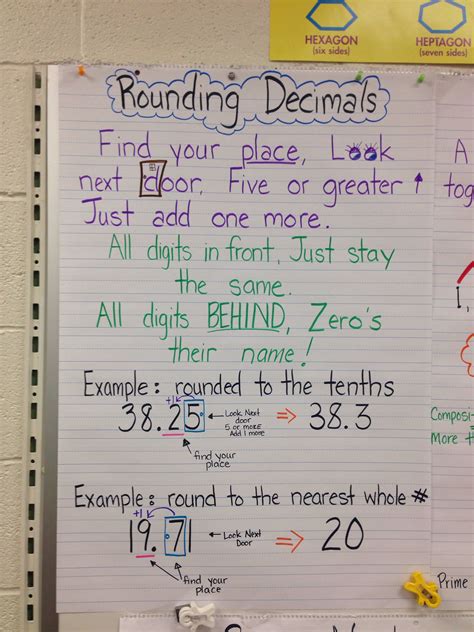 HEXAGON
(six sides)
HEPTAGON
(seven sides)
Rounding Decimals
Find your place, Look
next door. Five or greater ↑
Just add one more.
All digits in front, Just stay
the same.
All digits BEHIND, Zero's
their name!
Example: rounded to the tenths
+1
38.25 ← Look Next door 5 or more Add 1 more ⇒ 38.3
find your
place
Example: round to the nearest whole #
+1
19.71 ← Look Next Door ⇒ 20
find your
place
A
tog
1,
Composi
More t
Prime